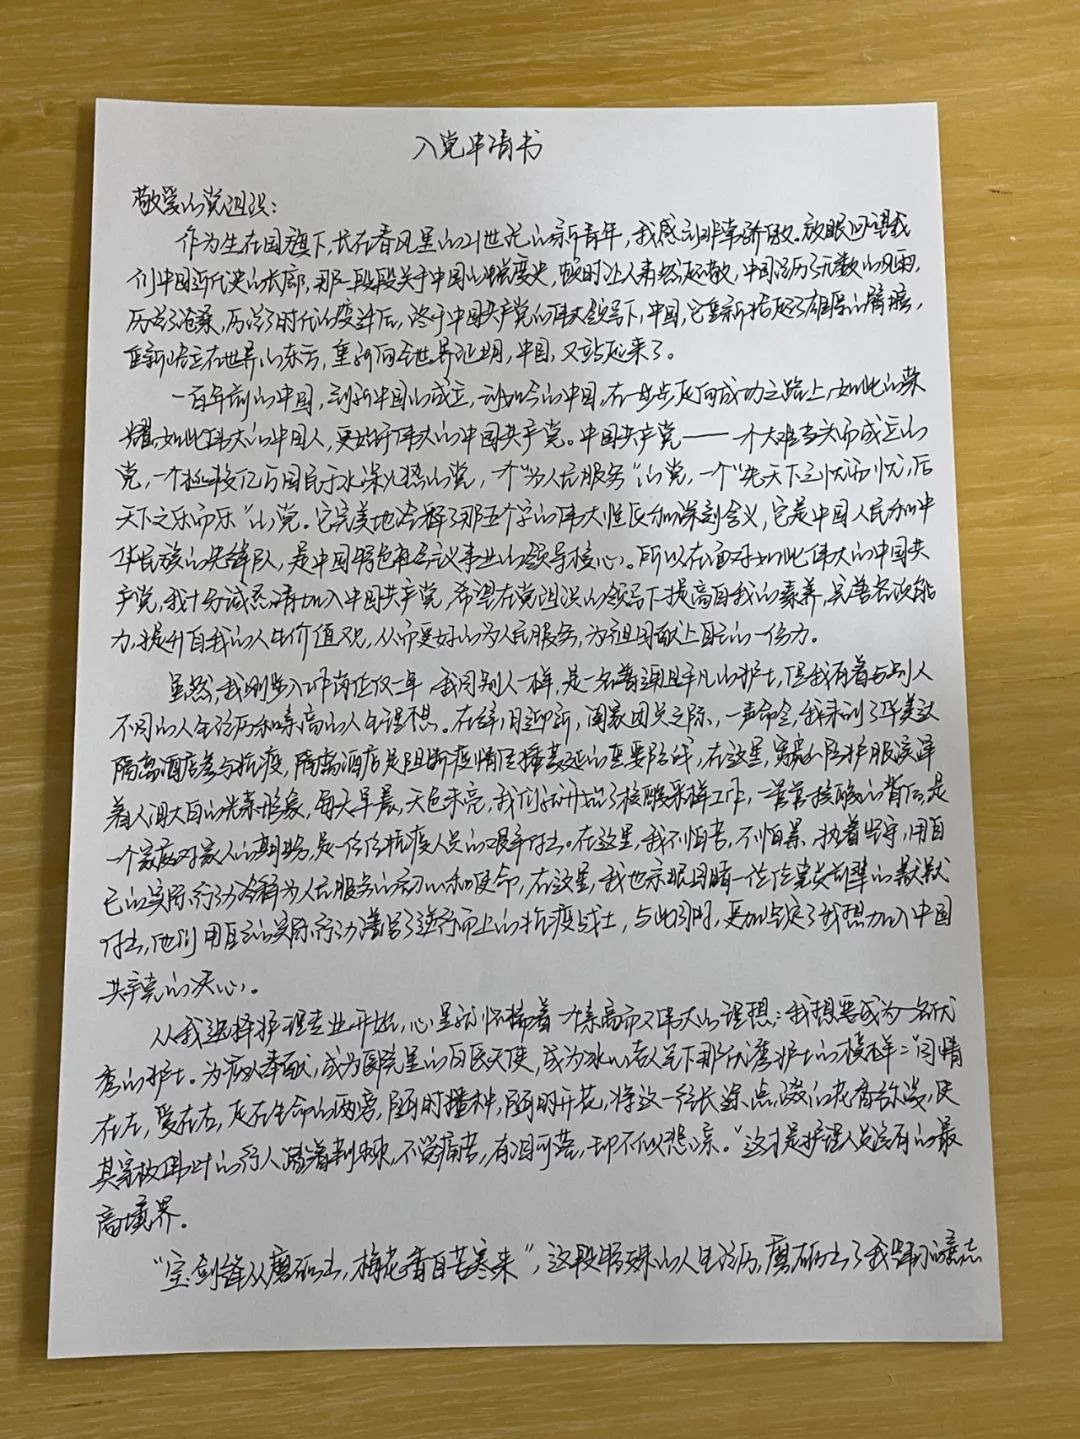 入党申请书
敬爱的党组织：
作为生在国旗下，长在春风里的21世纪的新青年，我感到非常骄傲。放眼回望我
们中国近代史的长廊，那一段段关于中国的史，顿时让人肃然起敬，中国经历了无数的风雨，
历经了沧桑，历经了时代的变迁后，终于中国共产党的伟大领导下，中国，它重新挺起了雄厚的胸膛，
重新屹立在世界的东方，重新向全世界证明，中国，又站起来了。
一百年前的中国，到新中国的成立，到如今的中国，在一步步走向成功之路上，如此的荣
耀，如此伟大的中国人，更好伟大的中国共产党。中国共产党——一个大难当头而成立的
党，一个拯救亿万国民于水深火热的党，一个“为人民服务”的党，一个“先天下之忧而忧，后
天下之乐而乐”的党。它完美地诠释了那五个字的伟大性质和深刻含义，它是中国人民和中
华民族的先锋队，是中国特色社会主义事业的领导核心。所以在面对如此伟大的中国共
产党，我十分诚恳请加入中国共产党，希望在党组织的领导下提高自我的素养，完善各项能
力，提升自我的人生价值观，从而更好的为人民服务，为祖国献上自己的一份力。
虽然，我刚步入工作岗位仅一年，我同别人一样，是一名普通且平凡的护士，但我有着与别人
不同的人生经历和崇高的人生理想。在辞旧迎新，阖家团员之际，一声命令，我来到了华美达
隔离酒店参与抗疫，隔离酒店是阻断疫情传播蔓延的重要防线，在这里，穿防护服演绎
着人间大白的光荣形象，每天早晨，天色未亮，我们就开始了核酸采样工作，一管管核酸的背后，是
一个家庭对家人的期盼，是一位位抗疫人员的艰辛付出。在这里，我不怕苦，不怕累，执着坚守，用自
己的实际行动诠释为人民服务的初心和使命，在这里，我也亲眼目睹一位位党员前辈的默默
付出，他们用自己的实际行动谱写了逆行而上的抗疫战士，与此同时，更加坚定了我想加入中国
共产党的决心。
从我选择护理专业开始，心里就怀揣着一个崇高而又伟大的理想：我想要成为一名优
秀的护士。为病人奉献，成为医院里的白衣天使，成为冰心老人笔下那优秀护士的模样：“同情
在左，爱在右，走在生命的两旁，随时播种，随时开花，将这一径长途，点缀的花香弥漫，使
其穿枝拂叶的行人踏着荆棘，不觉痛苦，有泪可落，却不似悲凉。”这才是护理人员应有的最
高境界。
“宝剑锋从磨砺出，梅花香自苦寒来”，这段特殊的人生经历，磨砺出了我坚韧的意志